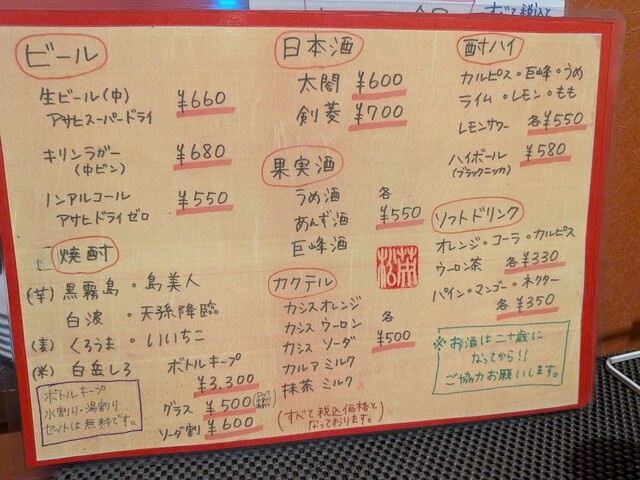 すべて税込と
ビール
生ビール(中) ¥660
アサヒスーパードライ
キリンラガー ¥680
(中ビン)
ノンアルコール ¥550
アサヒドライゼロ
焼酎
(芋) 黒霧島・島美人
白波・天孫降臨
(麦) くろうま・いいちこ
(米) 白岳しろ
ボトルキープ
¥3,300
グラス ¥500
ソーダ割 ¥600
ボトルキープ
水割り・湯割り
セットは無料です。
日本酒
太閤 ¥600
剣菱 ¥700
果実酒
うめ酒 各
あんず酒 ¥550
巨峰酒
カクテル
カシスオレンジ
カシスウーロン 各
カシスソーダ ¥500
カルアミルク
抹茶ミルク
(すべて税込価格と
なっております。)
酎ハイ
カルピス・巨峰・うめ
ライム・レモン・もも
レモンサワー 各¥550
ハイボール ¥580
(ブラックニッカ)
ソフトドリンク
オレンジ・コーラ・カルピス
ウーロン茶 各¥330
パイン・マンゴー・ネクター
各¥350
※お酒は二十歳に
なってから!!
ご協力お願いします。